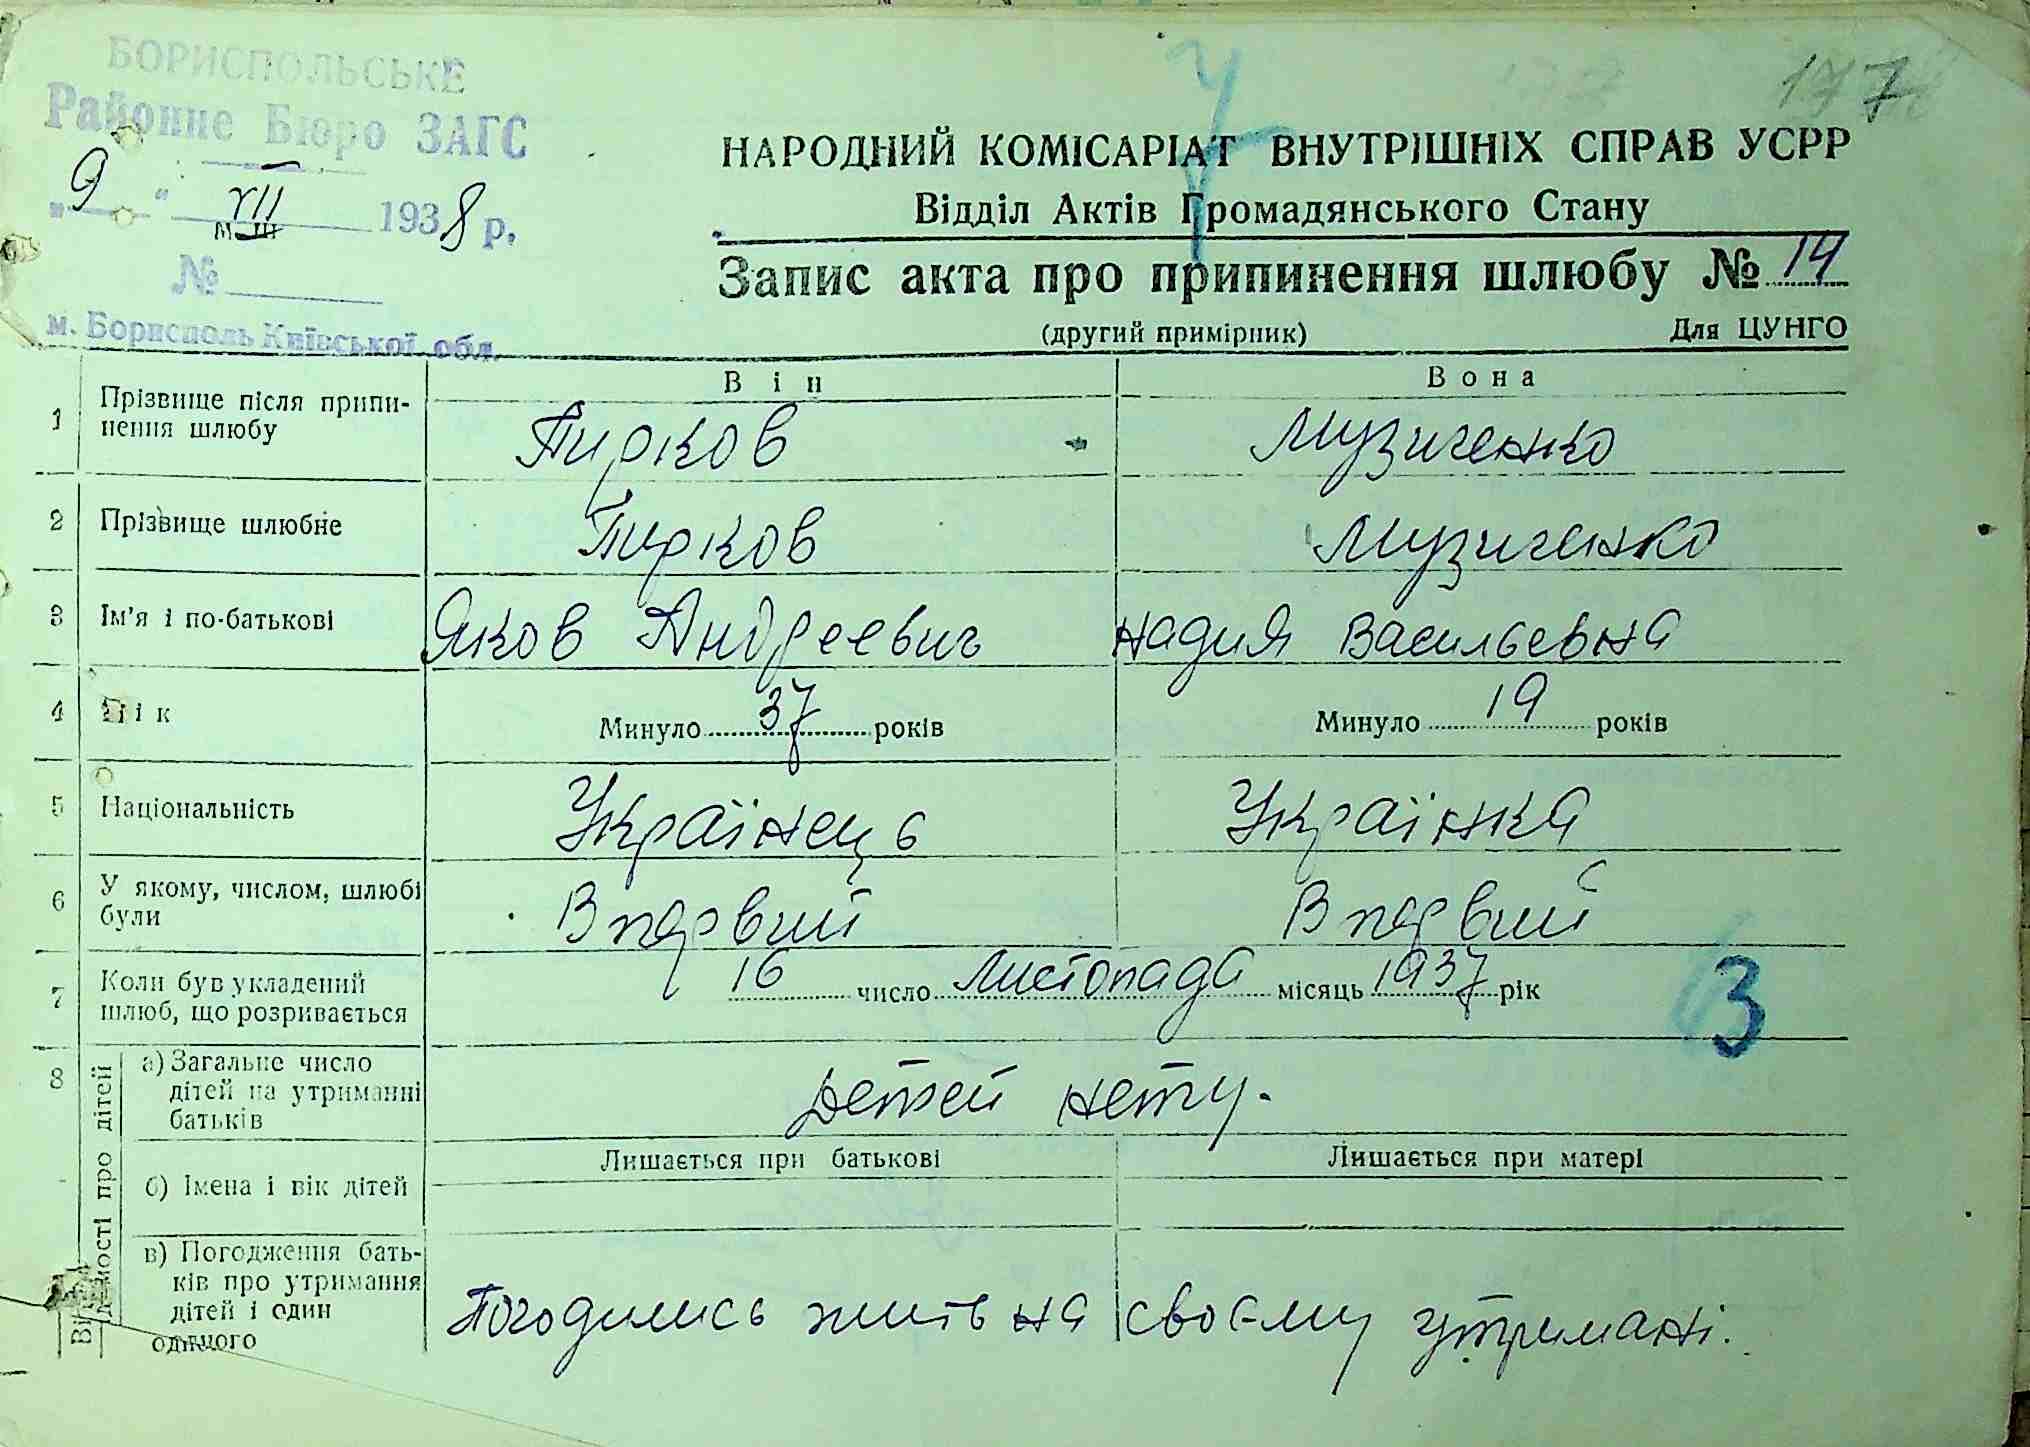 БОРИСПОЛЬСЬКЕ
Районне Бюро ЗАГС
„9“ VII 1938 р.
№
м. Борисполь Київської обл.
177
НАРОДНИЙ КОМІСАРІАТ ВНУТРІШНІХ СПРАВ УСРР
Відділ Актів Громадянського Стану
Запис акта про припинення шлюбу № 14
(другий примірник) Для ЦУНГО
Він Вона
1 Прізвище після припи-
нення шлюбу
Пирков Музиченко
2 Прізвище шлюбне Пирков Музиченко
3 Ім'я і по-батькові Яков Андреевич надия Васильевна
4 Вік Минуло 37 років Минуло 19 років
5 Національність Українець Українка
6 У якому, числом, шлюбі
були
Впервий Впервий
7 Коли був укладений
шлюб, що розривається
16 число Листопада місяць 1937 рік
3
8 Відомості про дітей
а) Загальне число
дітей на утриманні
батьків
детей нету.
Лишається при батькові Лишається при матері
б) Імена і вік дітей
в) Погодження бать-
ків про утримання
дітей і один
одного
Погодились жить на своєму утримані.